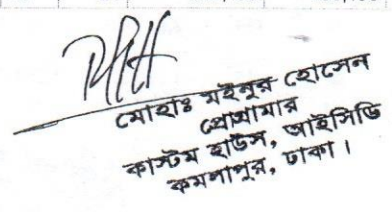 মোহাঃ মইনুর হোসেন
প্রোগ্রামার
কাস্টম হাউস, আইসিডি
কমলাপুর, ঢাকা।